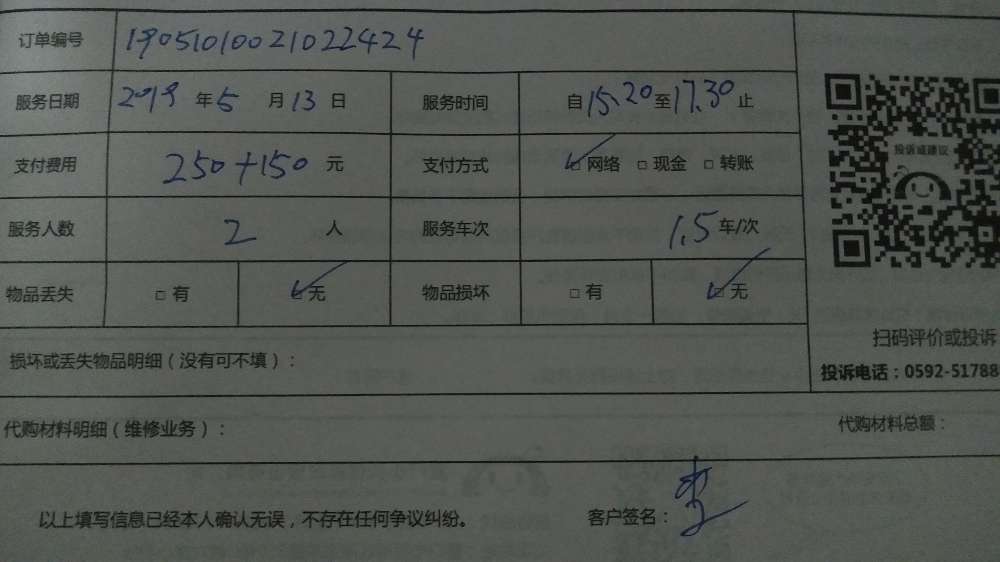 订单编号 1905101002102 2424
服务日期 2019 年 5 月 13 日 服务时间 自 15.20 至 17.30 止
支付费用 250+150 元 支付方式 ☑网络 □现金 □转账
投诉或建议
服务人数 2 人 服务车次 1.5 车/次
物品丢失 □有 ☑无 物品损坏 □有 ☑无
扫码评价或投诉
损坏或丢失物品明细（没有可不填）：
投诉电话：0592-51788
代购材料明细（维修业务）：
代购材料总额：
以上填写信息已经本人确认无误，不存在任何争议纠纷。 客户签名：